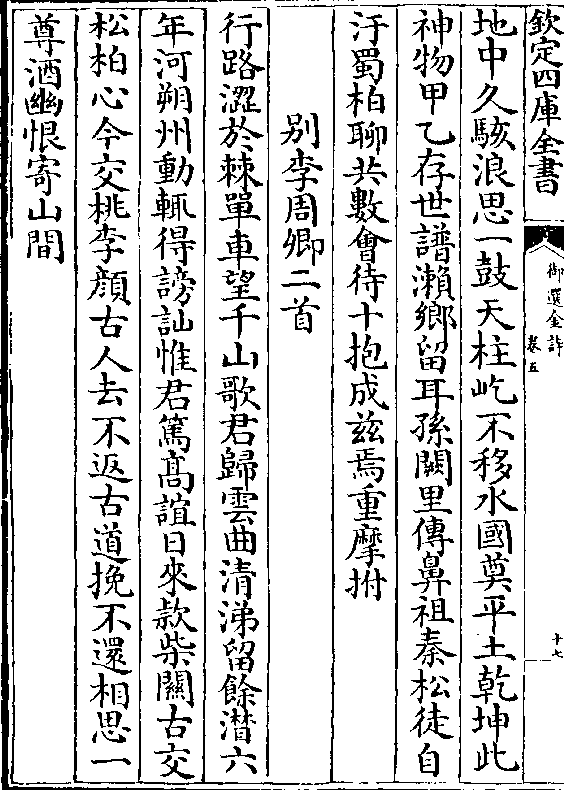 欽定四庫全書
御選金詩
卷五
十七
地中久駭浪思一鼓天柱屹不移水國奠平土乾坤此
神物甲乙存世譜瀨鄉留耳孫闕里傳鼻祖秦松徒自
汙蜀柏聊共數會待十抱成兹焉重摩拊
别李周卿二首
行路澀於棘單車望千山歌君歸雲曲清涕留餘潸六
年河朔州動輒得謗訕惟君篤髙誼日來款柴關古交
松柏心今交桃李顔古人去不返古道挽不還相思一
尊酒幽恨寄山間